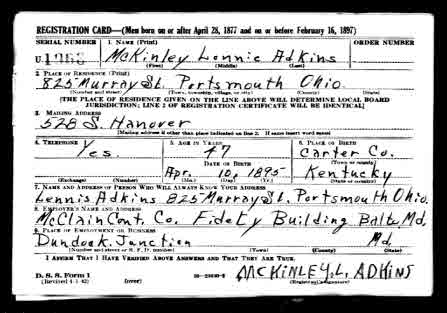 REGISTRATION CARD—(Men born on or after April 28, 1877 and on or before February 16, 1897)
SERIAL NUMBER 1. NAME (Print) ORDER NUMBER
U 1968 McKinley Lonnie Adkins
(First) (Middle) (Last)
2. PLACE OF RESIDENCE (Print)
825 Murray St. Portsmouth Ohio.
(Number and street) (Town, township, village, or city) (County) (State)
[THE PLACE OF RESIDENCE GIVEN ON THE LINE ABOVE WILL DETERMINE LOCAL BOARD
JURISDICTION; LINE 2 OF REGISTRATION CERTIFICATE WILL BE IDENTICAL]
3. MAILING ADDRESS
528 S. Hanover
[Mailing address if other than place indicated on line 2. If same insert word same]
4. TELEPHONE 5. AGE IN YEARS 6. PLACE OF BIRTH
Yes 47 Carter Co.
DATE OF BIRTH (Town or county)
Apr. 10, 1895 Kentucky
(Exchange) (Number) (Mo.) (Day) (Yr.) (State or country)
7. NAME AND ADDRESS OF PERSON WHO WILL ALWAYS KNOW YOUR ADDRESS
Lennis Adkins 825 Murray St. Portsmouth Ohio.
8. EMPLOYER'S NAME AND ADDRESS
McClain Cont. Co. Fidety Building Balto Md.
9. PLACE OF EMPLOYMENT OR BUSINESS
Dundoak Junction Md.
(Number and street or R. F. D. number) (Town) (County) (State)
I AFFIRM THAT I HAVE VERIFIED ABOVE ANSWERS AND THAT THEY ARE TRUE.
D. S. S. Form 1 McKINLEY. L. ADKINS
(Revised 4-1-42) (over) (Registrant's signature)